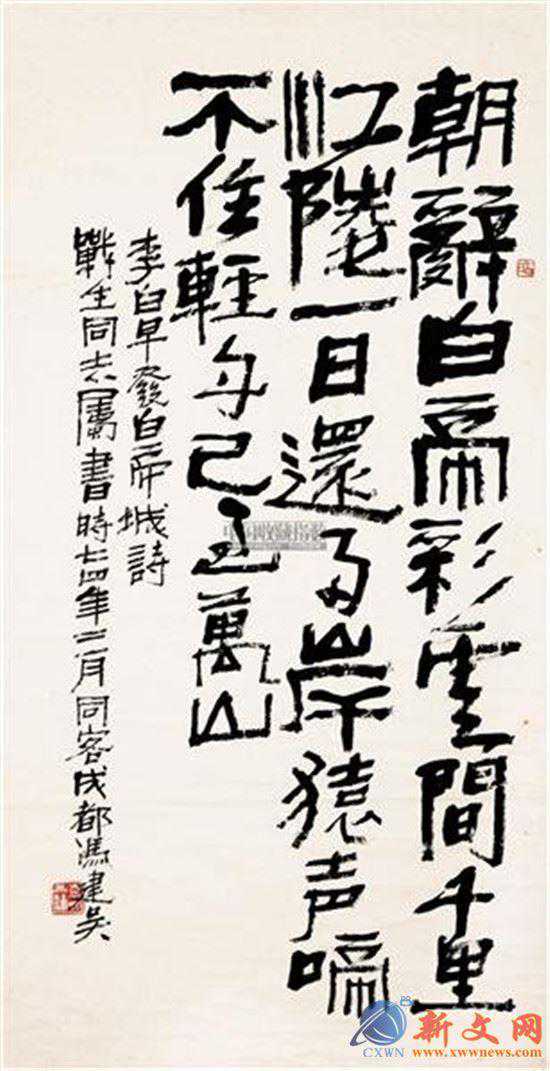 朝辭白帝彩雲間千里
江陵一日還两岸猿声啼
不住輕舟已过萬山
李白早發白帝城詩
生同志屬書時七四年三月同客成都馮建吴
新文网
CXWN www.xwwnews.com